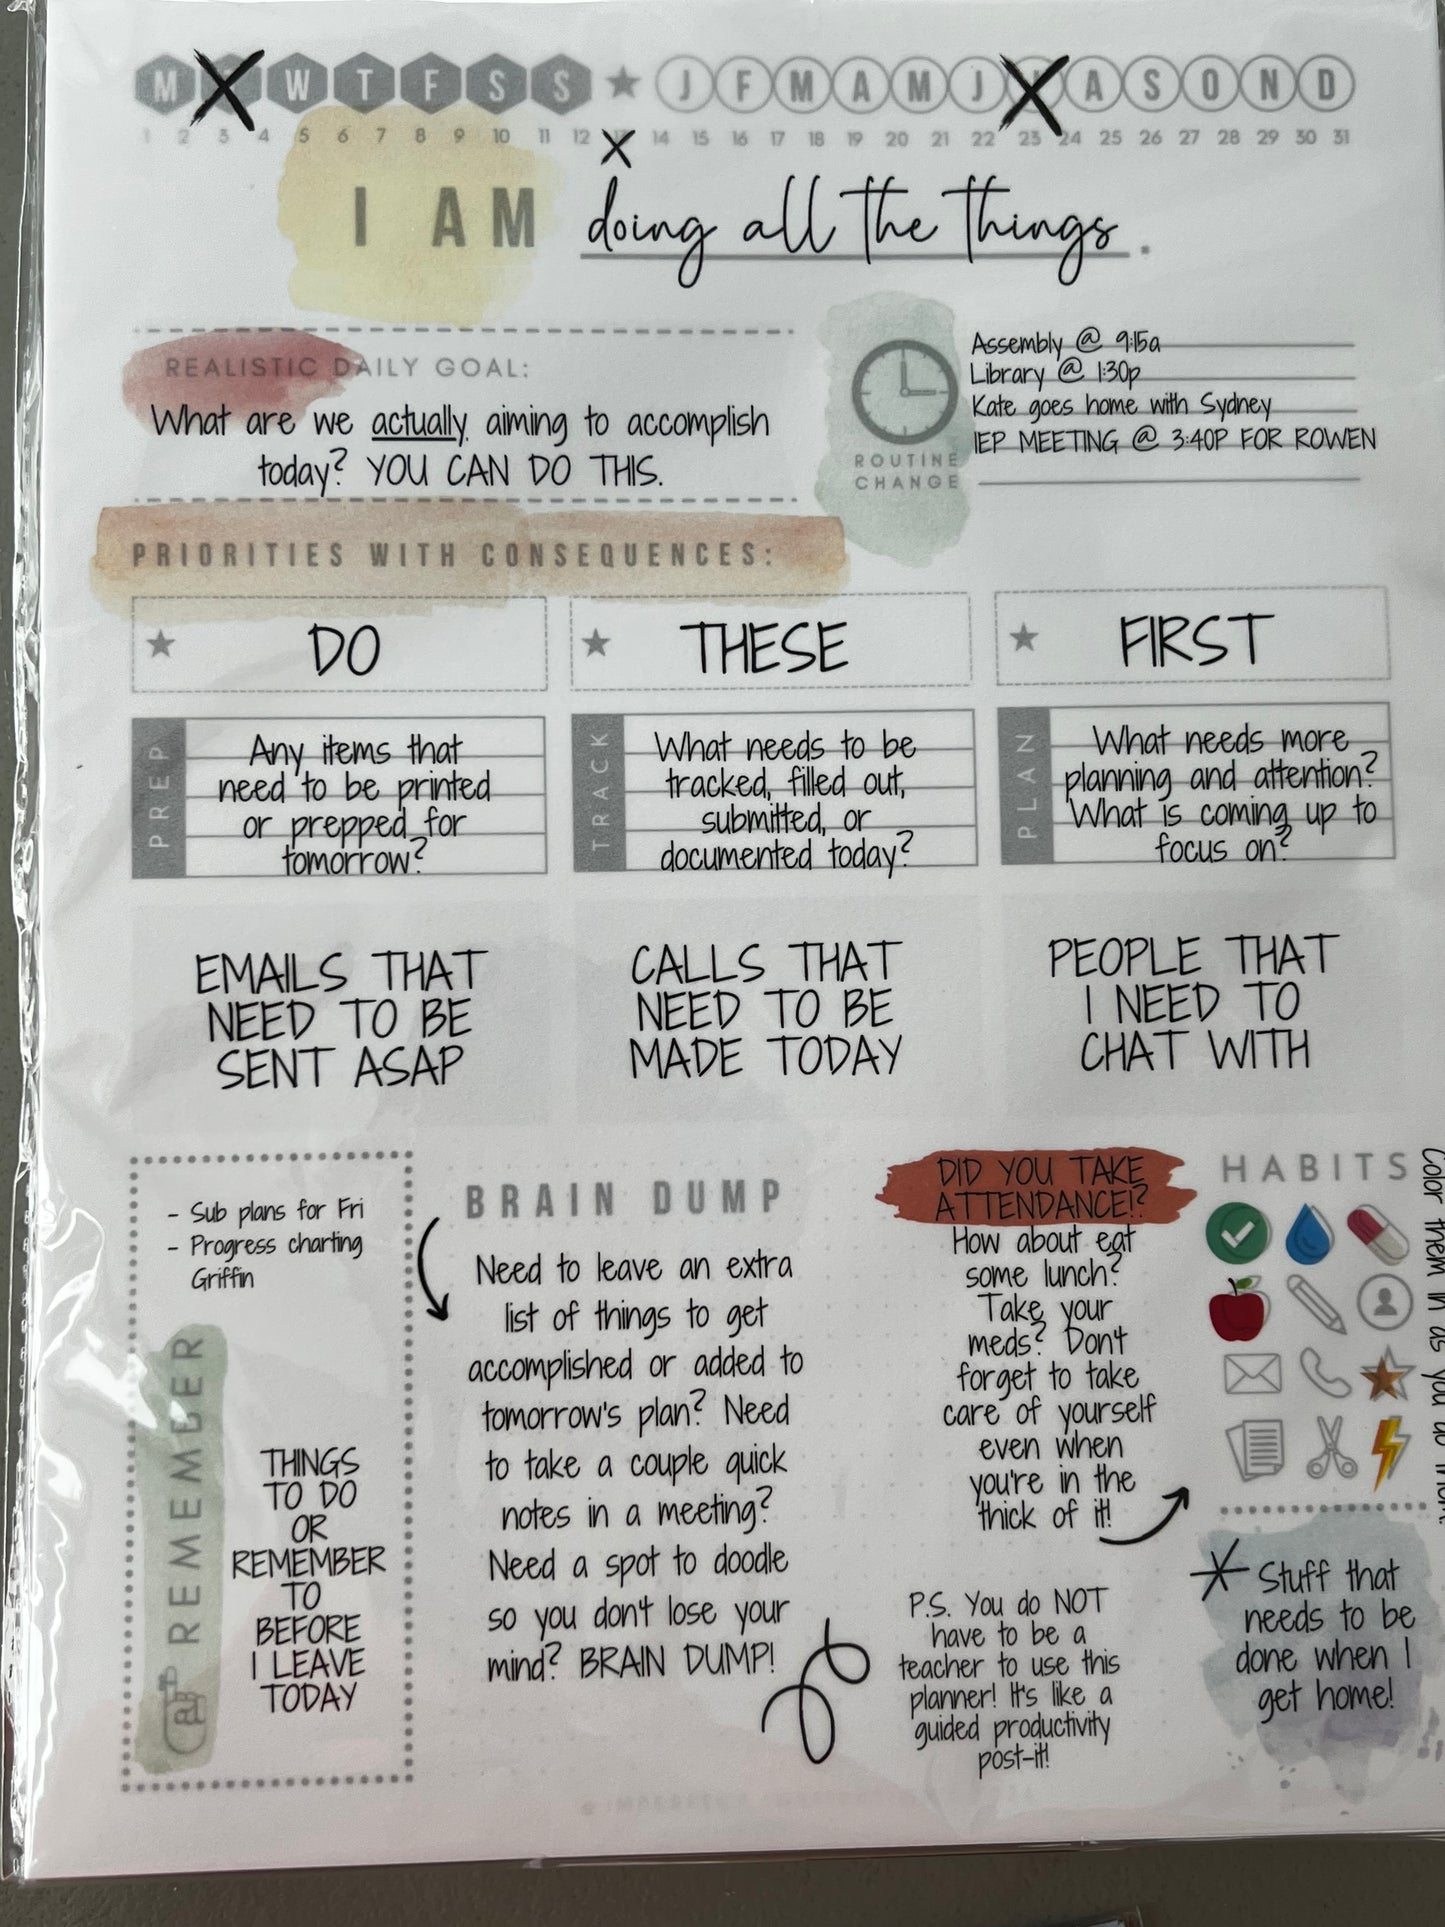 M W T F S S ★ J F M A M J A S O N D
1 2 3 4 5 6 7 8 9 10 11 12 14 15 16 17 18 19 20 21 22 23 24 25 26 27 28 29 30 31
I AM doing all the things.
REALISTIC DAILY GOAL:
What are we actually aiming to accomplish
today? YOU CAN DO THIS.
ROUTINE
CHANGE
Assembly @ 9:15a
Library @ 1:30p
Kate goes home with Sydney
IEP MEETING @ 3:40P FOR ROWEN
PRIORITIES WITH CONSEQUENCES:
★ DO
★ THESE
★ FIRST
PREP
Any items that
need to be printed
or prepped for
tomorrow?
TRACK
What needs to be
tracked, filled out,
submitted, or
documented today?
PLAN
What needs more
planning and attention?
What is coming up to
focus on?
EMAILS THAT
NEED TO BE
SENT ASAP
CALLS THAT
NEED TO BE
MADE TODAY
PEOPLE THAT
I NEED TO
CHAT WITH
- Sub plans for Fri
- Progress charting
Griffin
REMEMBER
THINGS
TO DO
OR
REMEMBER
TO
BEFORE
I LEAVE
TODAY
BRAIN DUMP
Need to leave an extra
list of things to get
accomplished or added to
tomorrow's plan? Need
to take a couple quick
notes in a meeting?
Need a spot to doodle
so you don't lose your
mind? BRAIN DUMP!
DID YOU TAKE
ATTENDANCE!?
How about eat
some lunch?
Take your
meds? Don't
forget to take
care of yourself
even when
you're in the
thick of it!
P.S. You do NOT
have to be a
teacher to use this
planner! It's like a
guided productivity
post-it!
HABITS
Color them in as you do
* Stuff that
needs to be
done when I
get home!